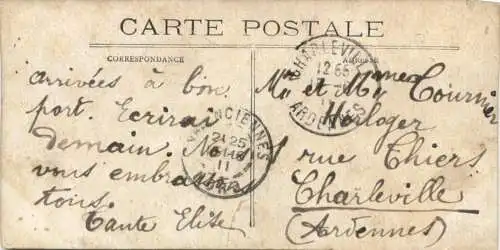 CARTE POSTALE
CORRESPONDANCE
ADRESSE
arrivées à bon
port. Ecrirai
demain. Ns
vous embrassons
tous.
Tante Elise
CHARLEVILLE
ARDENNES
VALENCIENNES
21 25
11
Mr et Mme Cournier
Horloger
1 rue Thiers
Charleville
(Ardennes)